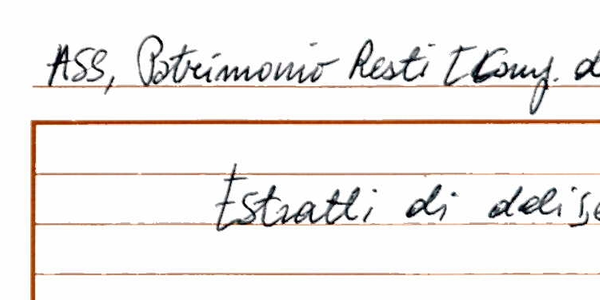 ASS, Patrimonio Resti [Cong. d
Estratti di delibe